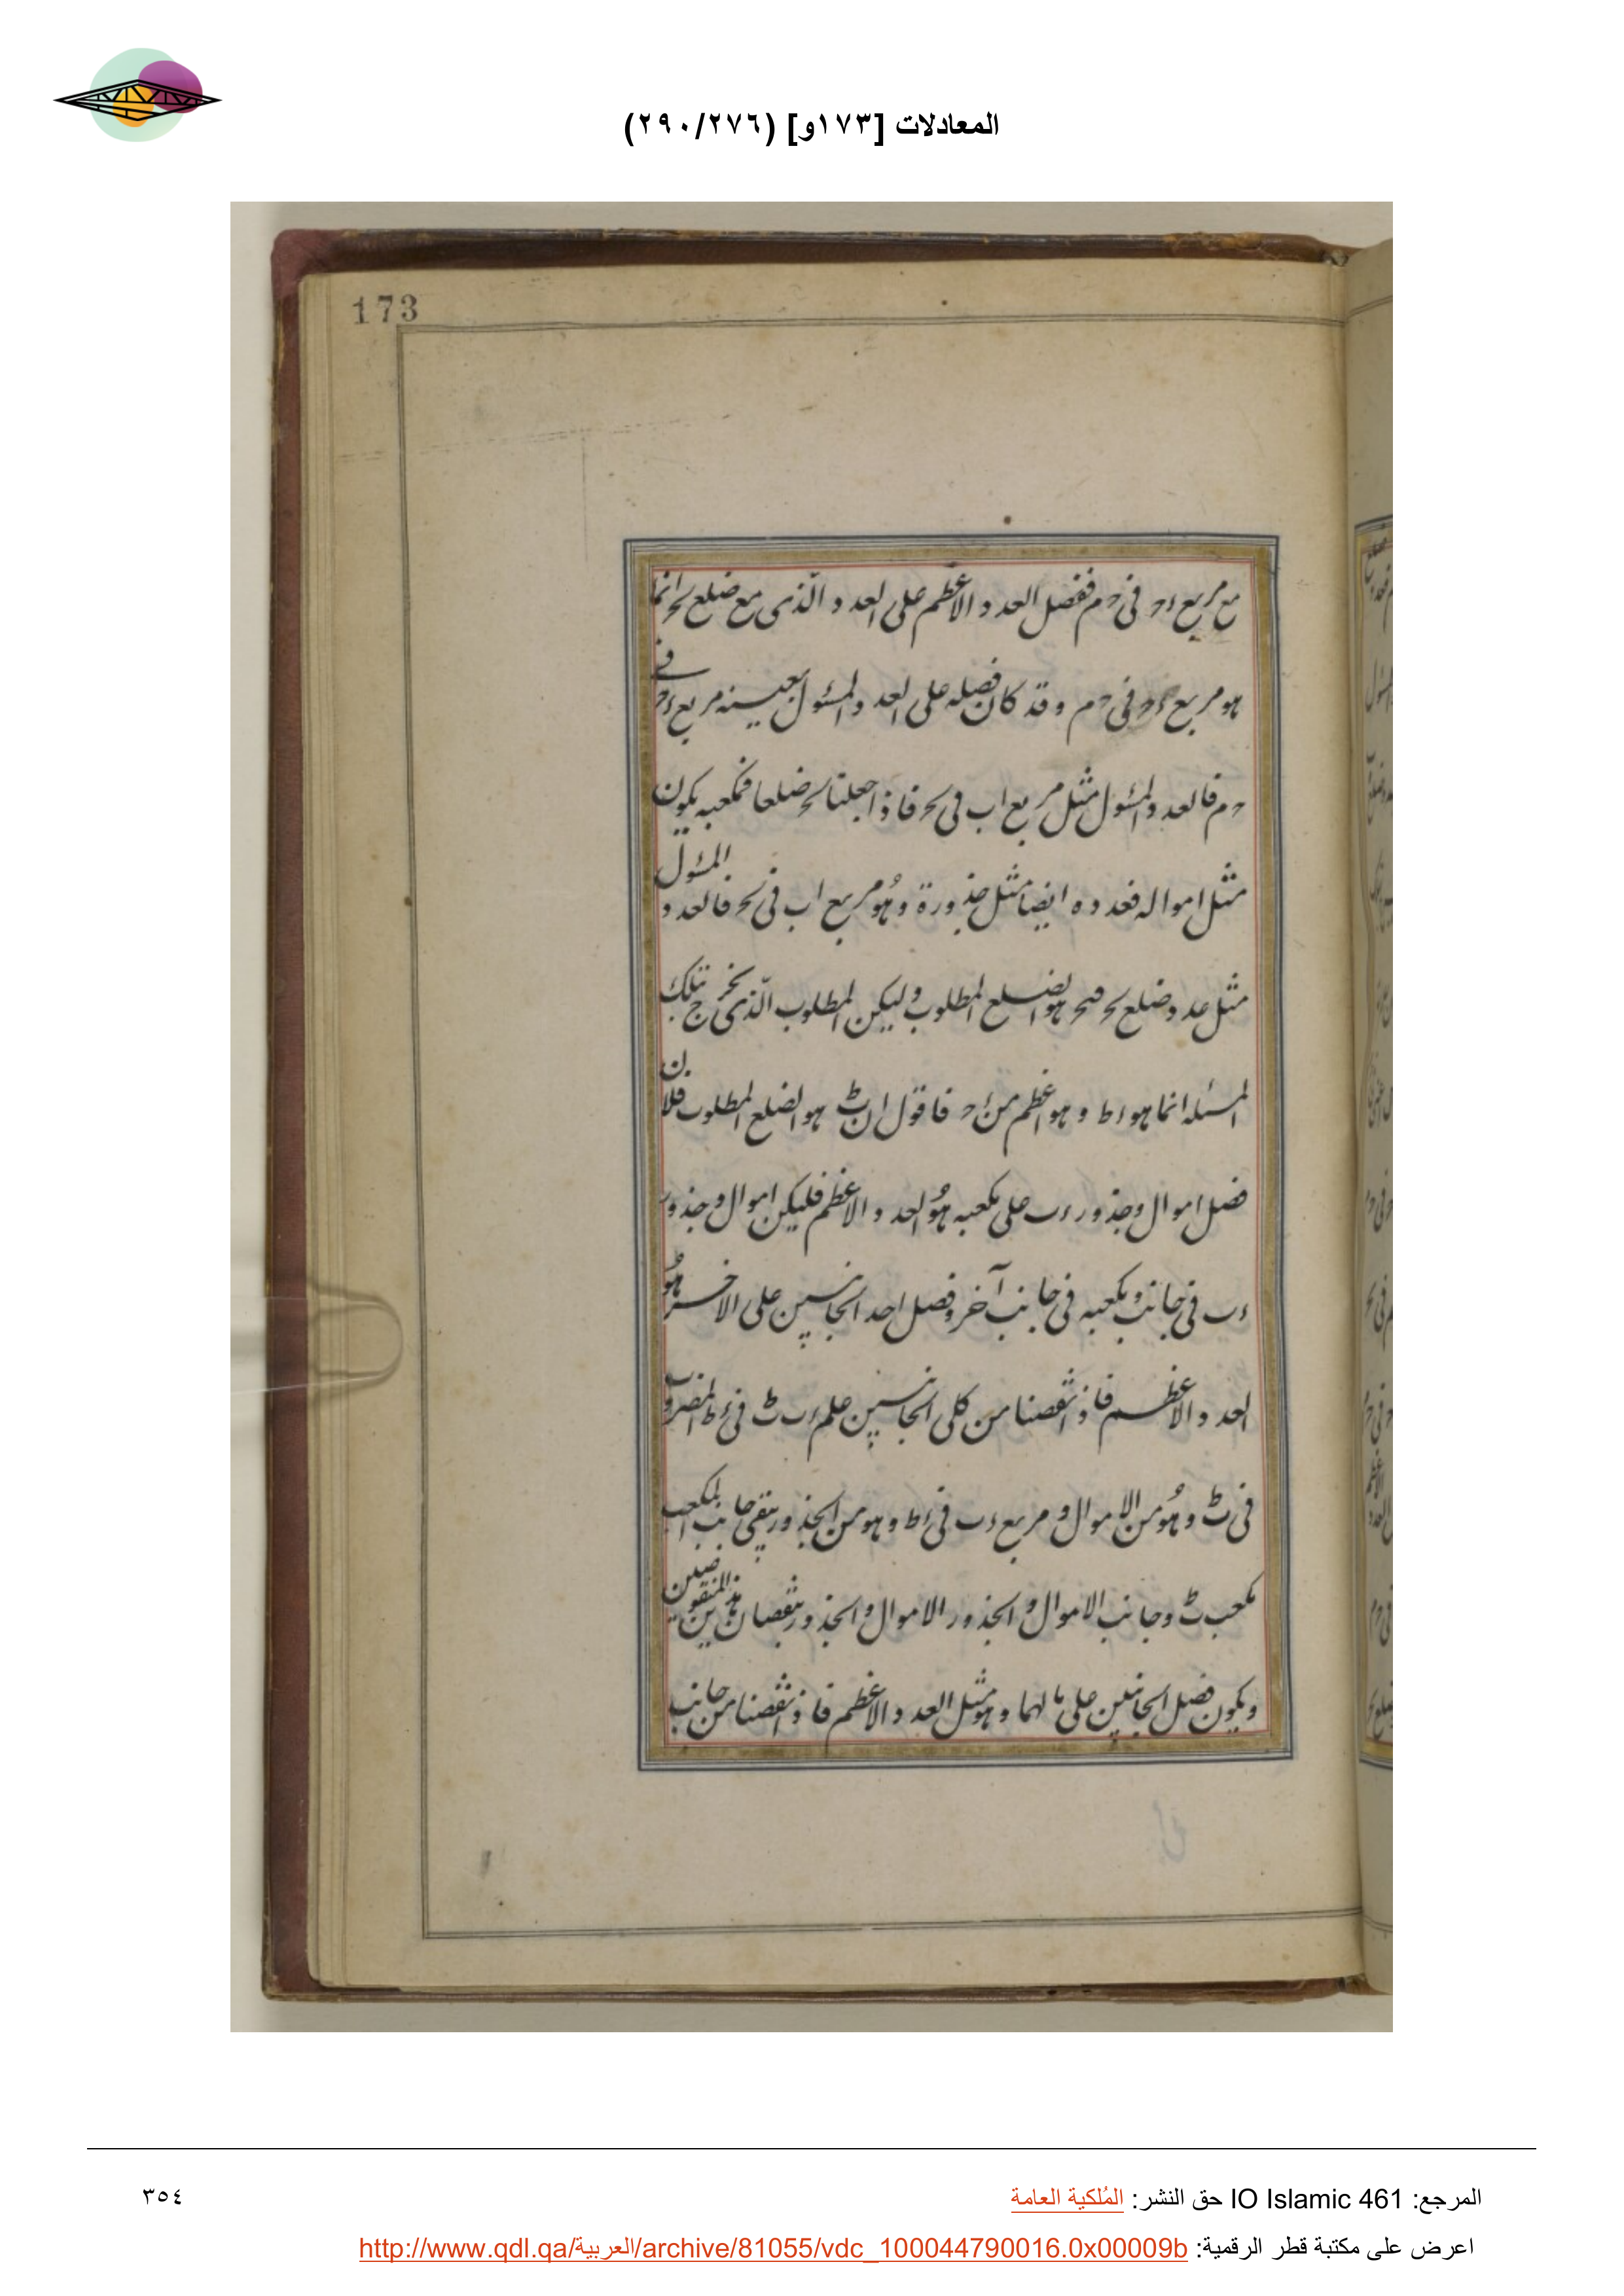 المعادلات [١٧٣و] (٢٩٠/٢٧٦)
173
مع مربع ءح في حم ففضل العدد الاعظم على العدد الذى مع ضلع بح انما
هو مربع ءح في حم وقد كان فضله على العدد المسئول بعينه مربع ءح في
حم فالعدد المسئول مثل مربع اب في بح فاذا جعلنا بح ضلعا فمكعبه يكون
مثل امواله فعدده ايضا مثل جذوره وهو مربع اب في بح فالعدد المسئول
مثل عدد ضلع بح فبح هو الضلع المطلوب وليكن المطلوب الذى يخرج تلك
المسئله انما هو ءط وهو اعظم من ءح فاقول ان بط هو الضلع المطلوب فلان
فضل اموال وجذور ءب على مكعبه هو العدد الاعظم فليكن اموال وجذور
ءب في جانب ومكعبه في جانب آخر وفضل احد الجانبين على الاخر هو
العدد الاعظم فاذا نقصنا من كلى الجانبين علم ءب بط في ءط المضروب
في بط وهو من الاموال و مربع ءب في ءط وهو من الجذور يبقى جانب المكعب
مكعب بط وجانب الاموال والجذور الاموال والجذور بنقصان هذين المنقوصين
ويكون فضل الجانبين على مالهما وهو مثل العدد الاعظم فاذا نقصنا من جانب
المرجع: IO Islamic 461 حق النشر: المُلكية العامة
٣٥٤
اعرض على مكتبة قطر الرقمية: http://www.qdl.qa/العربية/archive/81055/vdc_100044790016.0x00009b